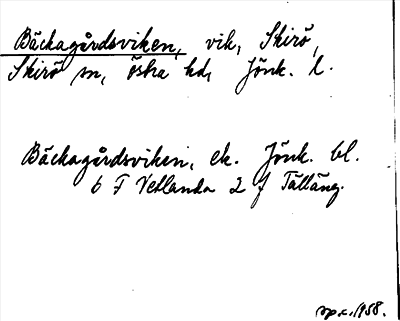 Bäckagårdsviken, vik, Skirö,
Skirö sn, östra hd, Jönk. l.
Bäckagårdsviken, ek. Jönk. bl.
6 F Vetlanda 2 j Tälläng.
1958.